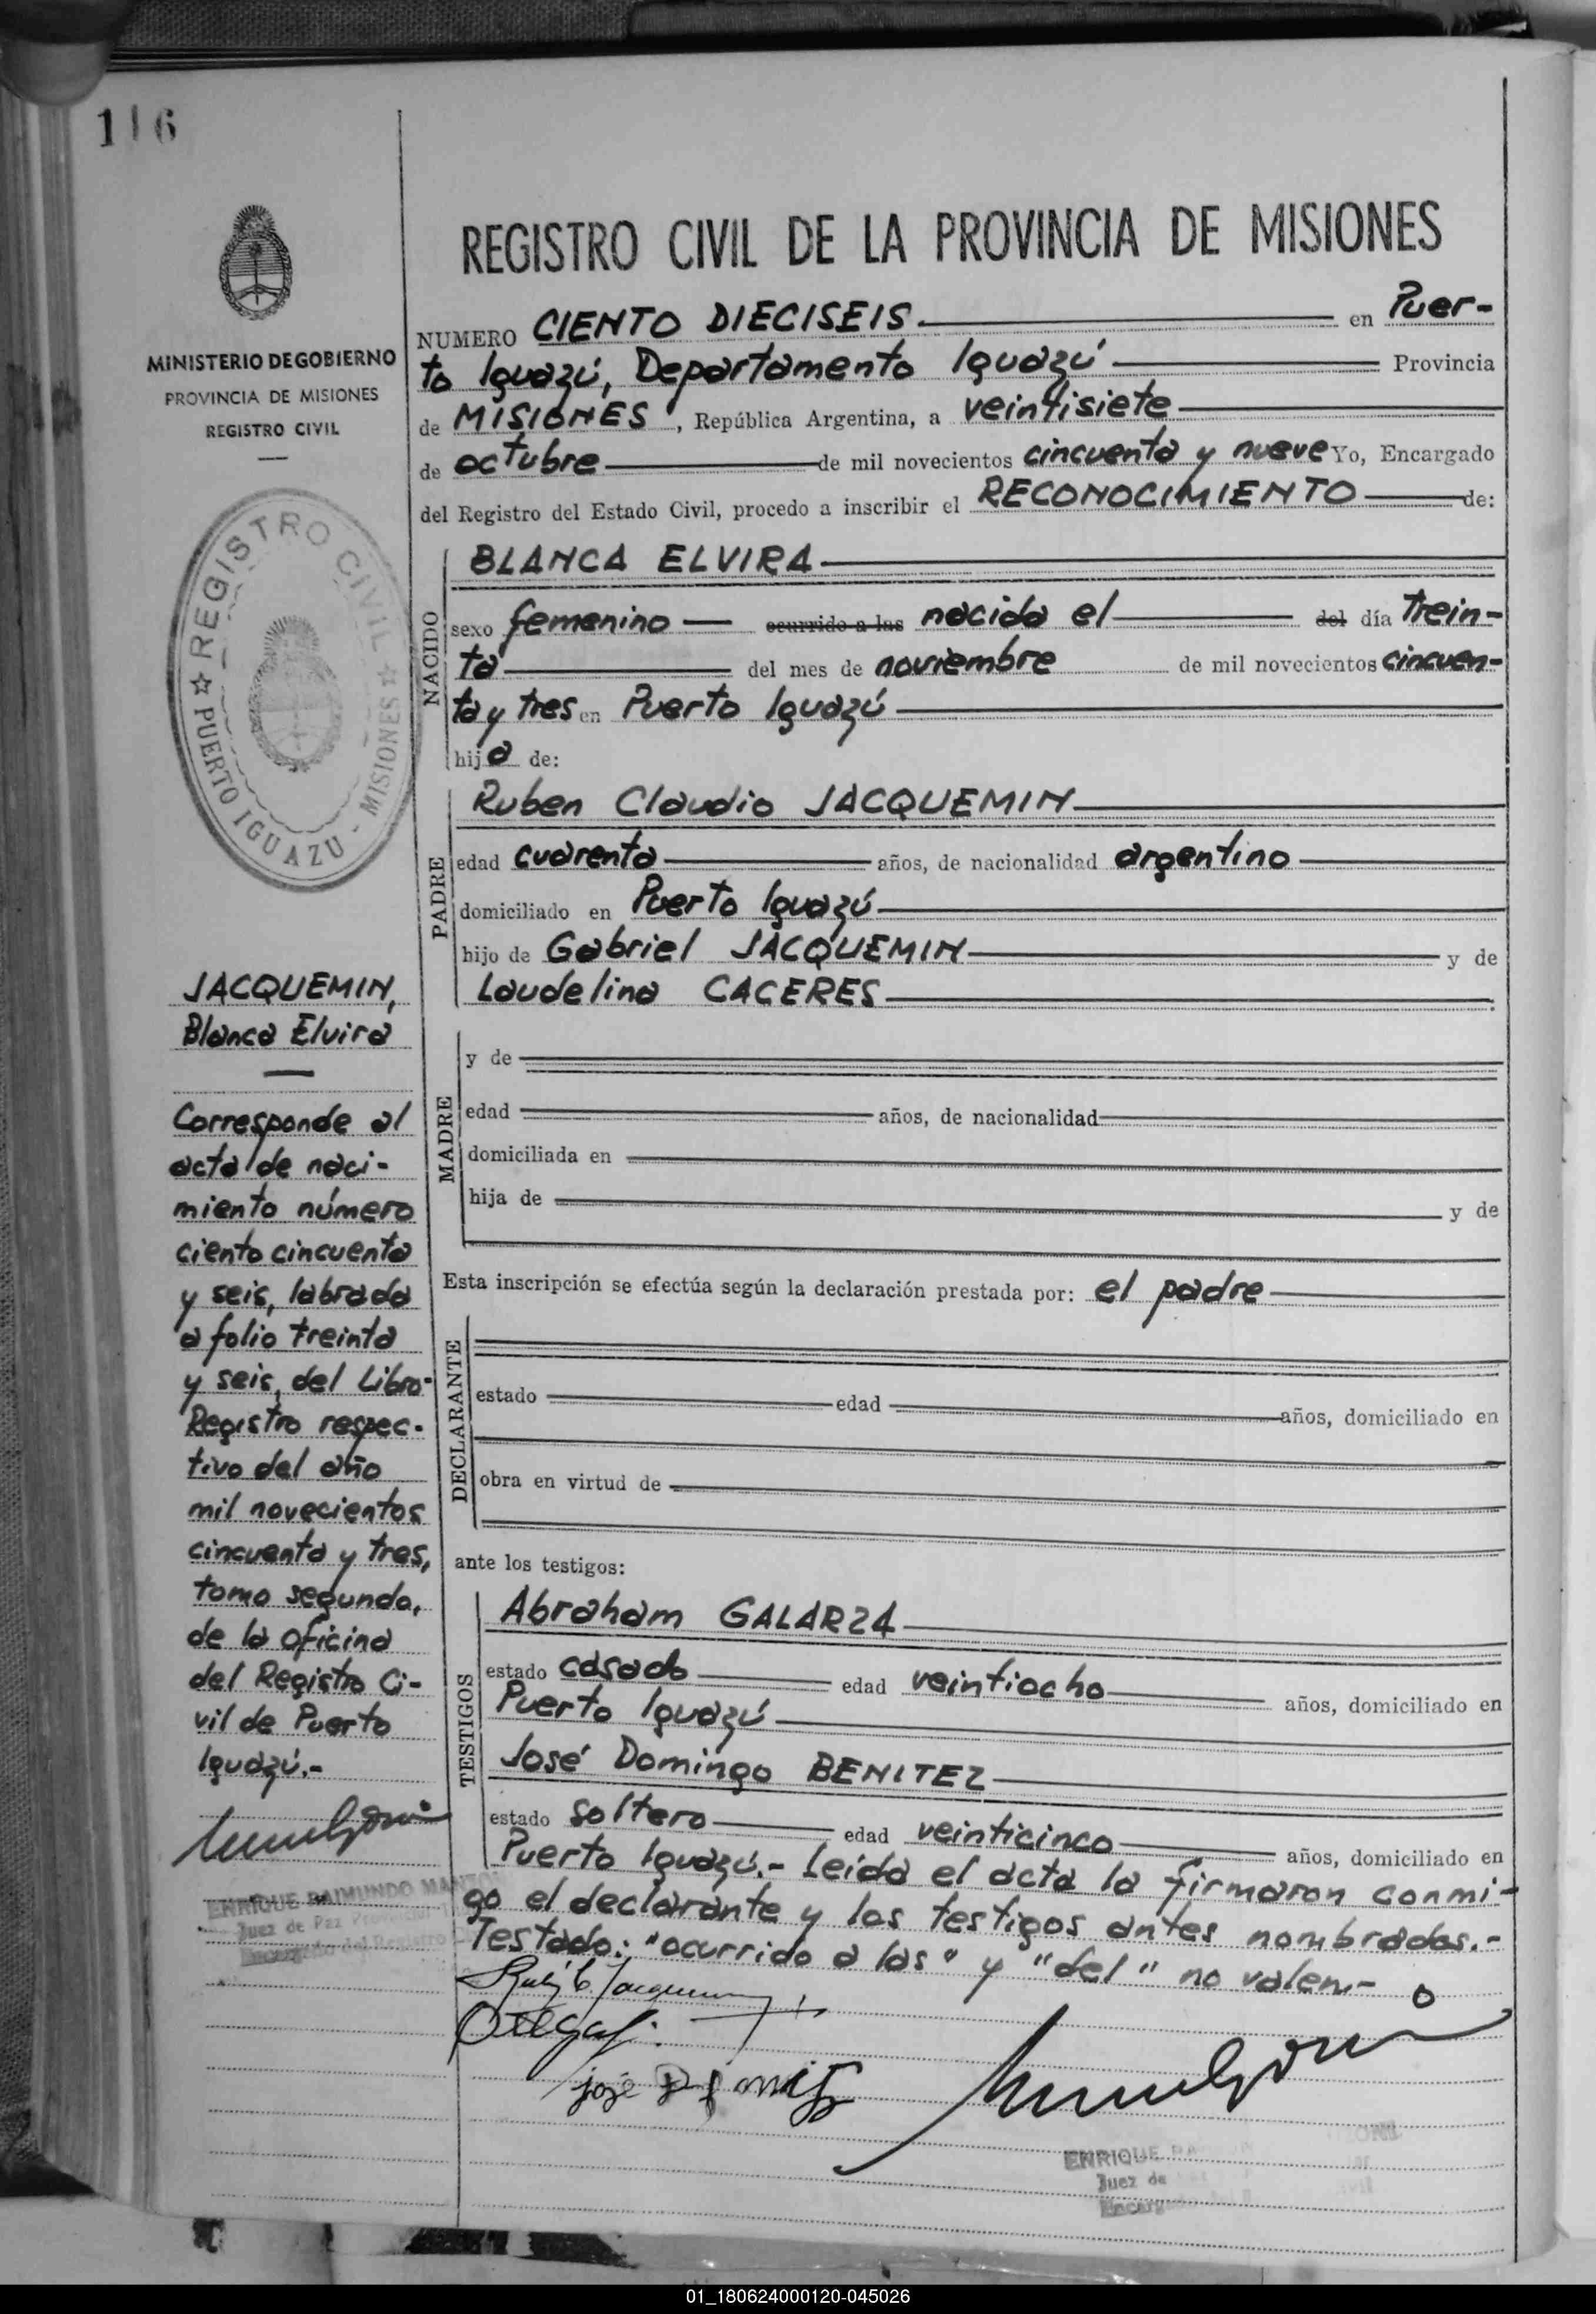 116
MINISTERIO DE GOBIERNO
PROVINCIA DE MISIONES
REGISTRO CIVIL
REGISTRO CIVIL
PUERTO IGUAZU - MISIONES
JACQUEMIN,
Blanca Elvira
Corresponde al
acta de naci-
miento número
ciento cincuenta
y seis, labrada
a folio treinta
y seis, del Libro-
Registro respec-
tivo del año
mil novecientos
cincuenta y tres,
tomo segundo,
de la oficina
del Registro Ci-
vil de Puerto
Iguazú.-
ENRIQUE RAIMUNDO
Juez de Paz Provincial
Encargado del Registro
REGISTRO CIVIL DE LA PROVINCIA DE MISIONES
NUMERO CIENTO DIECISEIS. en Puer-
to Iguazú, Departamento Iguazú Provincia
de MISIONES, República Argentina, a veintisiete
de octubre de mil novecientos cincuenta y nueve Yo, Encargado
del Registro del Estado Civil, procedo a inscribir el RECONOCIMIENTO de:
NACIDO
BLANCA ELVIRA
sexo femenino ocurrido a las nacida el del día trein-
ta del mes de noviembre de mil novecientos cincuen-
ta y tres en Puerto Iguazú
hija de:
PADRE
Ruben Claudio JACQUEMIN
edad cuarenta años, de nacionalidad argentino
domiciliado en Puerto Iguazú
hijo de Gabriel JACQUEMIN y de
Laudelina CACERES
MADRE
y de
edad años, de nacionalidad
domiciliada en
hija de y de
Esta inscripción se efectúa según la declaración prestada por: el padre
DECLARANTE
estado edad años, domiciliado en
obra en virtud de
ante los testigos:
TESTIGOS
Abraham GALARZA
estado casado edad veintiocho años, domiciliado en
Puerto Iguazú
José Domingo BENITEZ
estado soltero edad veinticinco años, domiciliado en
Puerto Iguazú.- Leída el acta la firmaron conmi-
go el declarante y los testigos antes nombrados.-
Testado: "ocurrido a las" y "del" no valen.-
ENRIQUE
Juez de
01_180624000120-045026